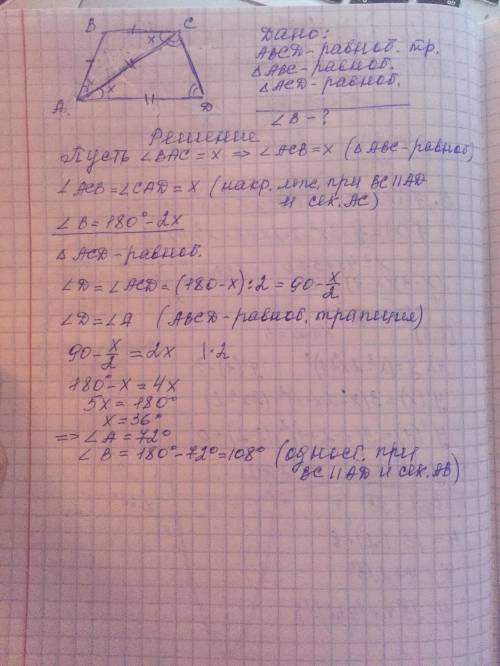 B C
x
x
x
A D
Дано:
ABCD - равноб. тр.
△ABC - равноб.
△ACD - равноб.
∠B - ?
Решение
Пусть ∠BAC = x ⇒ ∠ACB = x (△ABC - равноб)
∠ACB = ∠CAD = x (накр. леж. при BC || AD
и сек. AC)
∠B = 180° - 2x
△ACD - равноб.
∠D = ∠ACD = (180 - x) : 2 = 90 - x/2
∠D = ∠A (ABCD - равноб. трапеция)
90 - x/2 = 2x | · 2
180° - x = 4x
5x = 180°
x = 36°
⇒ ∠A = 72°
∠B = 180° - 72° = 108° (одност. при
BC || AD и сек. AB)